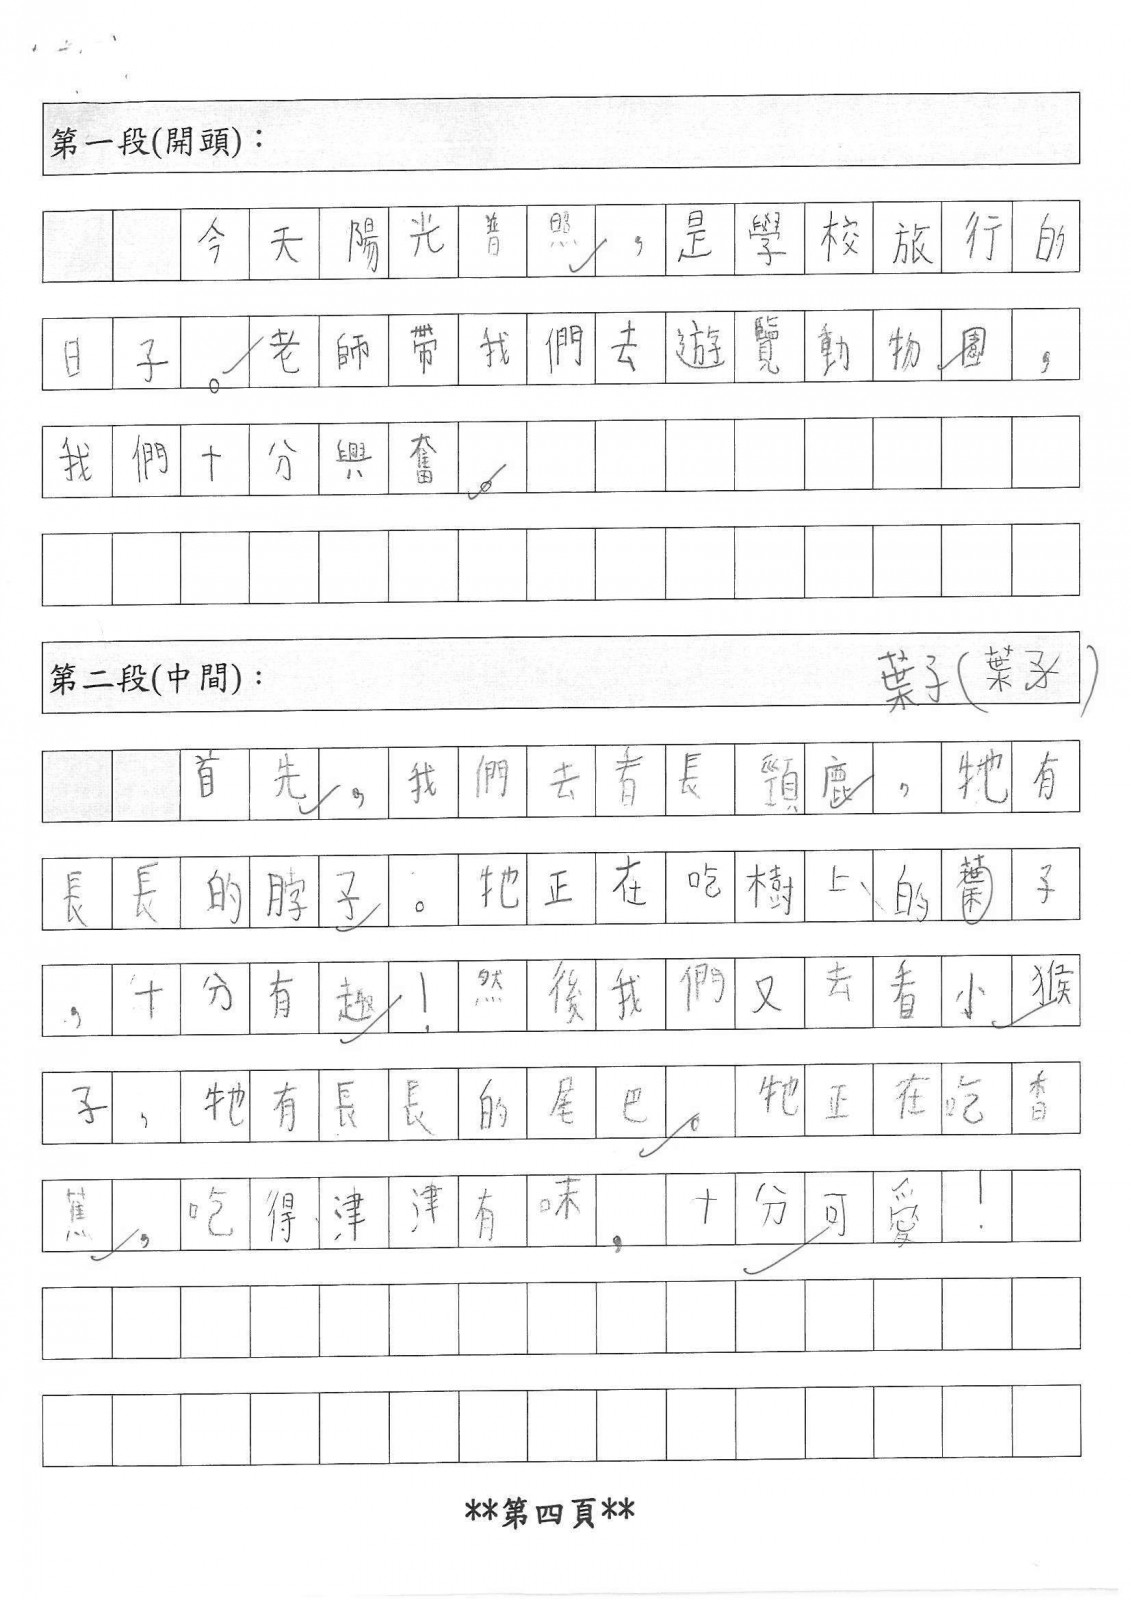 第一段(開頭)：
今天陽光普照，是學校旅行的
日子。老師帶我們去遊覽動物園，
我們十分興奮。
第二段(中間)：
葉子(葉子)
首先，我們去看長頸鹿，牠有
長長的脖子。牠正在吃樹上的葉子
，十分有趣！然後我們又去看小猴
子，牠有長長的尾巴。牠正在吃香
蕉，吃得津津有味，十分可愛！
**第四頁**